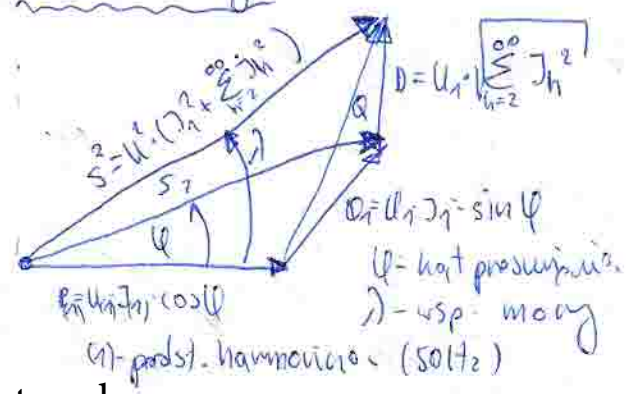 S² = U²·(J₁² + ∑ₕ₌₂^∞ Jₕ²)
D = U₁·√∑ₕ₌₂^∞ Jₕ²
Q
λ
S₁
φ
Q₁ = U₁·J₁·sin φ
P₁ = U₁·J₁·cos φ
φ - kąt przesunięcia
λ - wsp. mocy
(1) - podst. harmoniczna (50Hz)